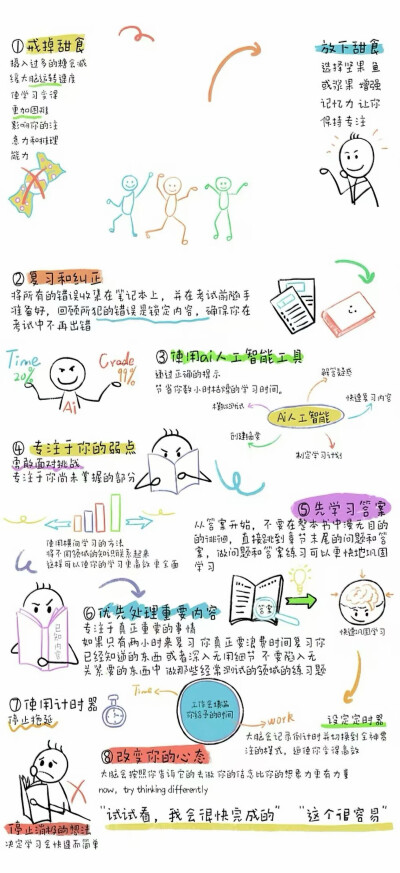 ①戒掉甜食
摄入过多的糖会减
缓大脑运转速度
使学习变得
更加困难
影响你的注
意力和推理
能力
放下甜食
选择坚果 鱼
或浆果 增强
记忆力 让你
保持专注
②复习和纠正
将所有的错误收集在笔记本上, 并在考试前随手
准备好, 回顾所犯的错误是锁定内容, 确保你在
考试中不再出错
Time
20%
Grade
99%
Ai
③使用ai人工智能工具
通过正确的提示
节省你数小时枯燥的学习时间。
解答疑惑
模拟测试
快速复习内容
Ai人工智能
创建插图
制定学习计划
④专注于你的弱点
勇敢面对挑战
专注于你尚未掌握的部分
使用横向学习的方法
将不同领域的知识联系起来
这样可以使你的学习更高效 更全面
⑤先学习答案
从答案开始, 不要在整本书中漫无目的
的徘徊, 直接跳到章节末尾的问题和答
案, 做问题和答案练习可以更快地巩固
学习
答案
快速巩固学习
已知内容
⑥优先处理重要内容
专注于真正重要的事情
如果只有两小时来复习 你真正要浪费时间复习你
已经知道的东西 或者深入无用细节 不要陷入无
关紧要的东西中 做那些经常测试的领域的练习题
⑦使用计时器
停止拖延
Time
工作会填满
你给予的时间
work
设定定时器
大脑会记录倒计时并切换到全神贯
注的模式, 迫使你变得高效
⑧改变你的心态
大脑会按照你告诉它的去做 你的信念比你的想象力更有力量
now, try thinking differently
"试试看, 我会很快完成的" "这个很容易"
停止消极的想法
决定学习会快速而简单